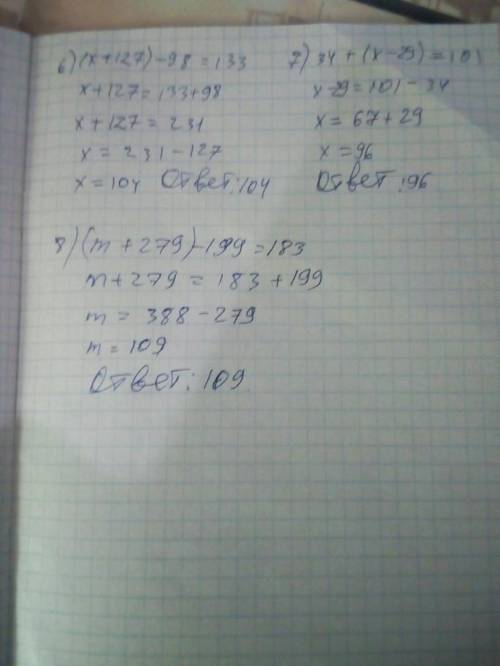 6) (x+127)-98=133
x+127=133+98
x+127=231
x=231-127
x=104 Ответ:104
7) 34+(x-29)=101
x-29=101-34
x=67+29
x=96
Ответ:96
8) (m+279)-199=183
m+279=183+199
m=388-279
m=109
Ответ:109